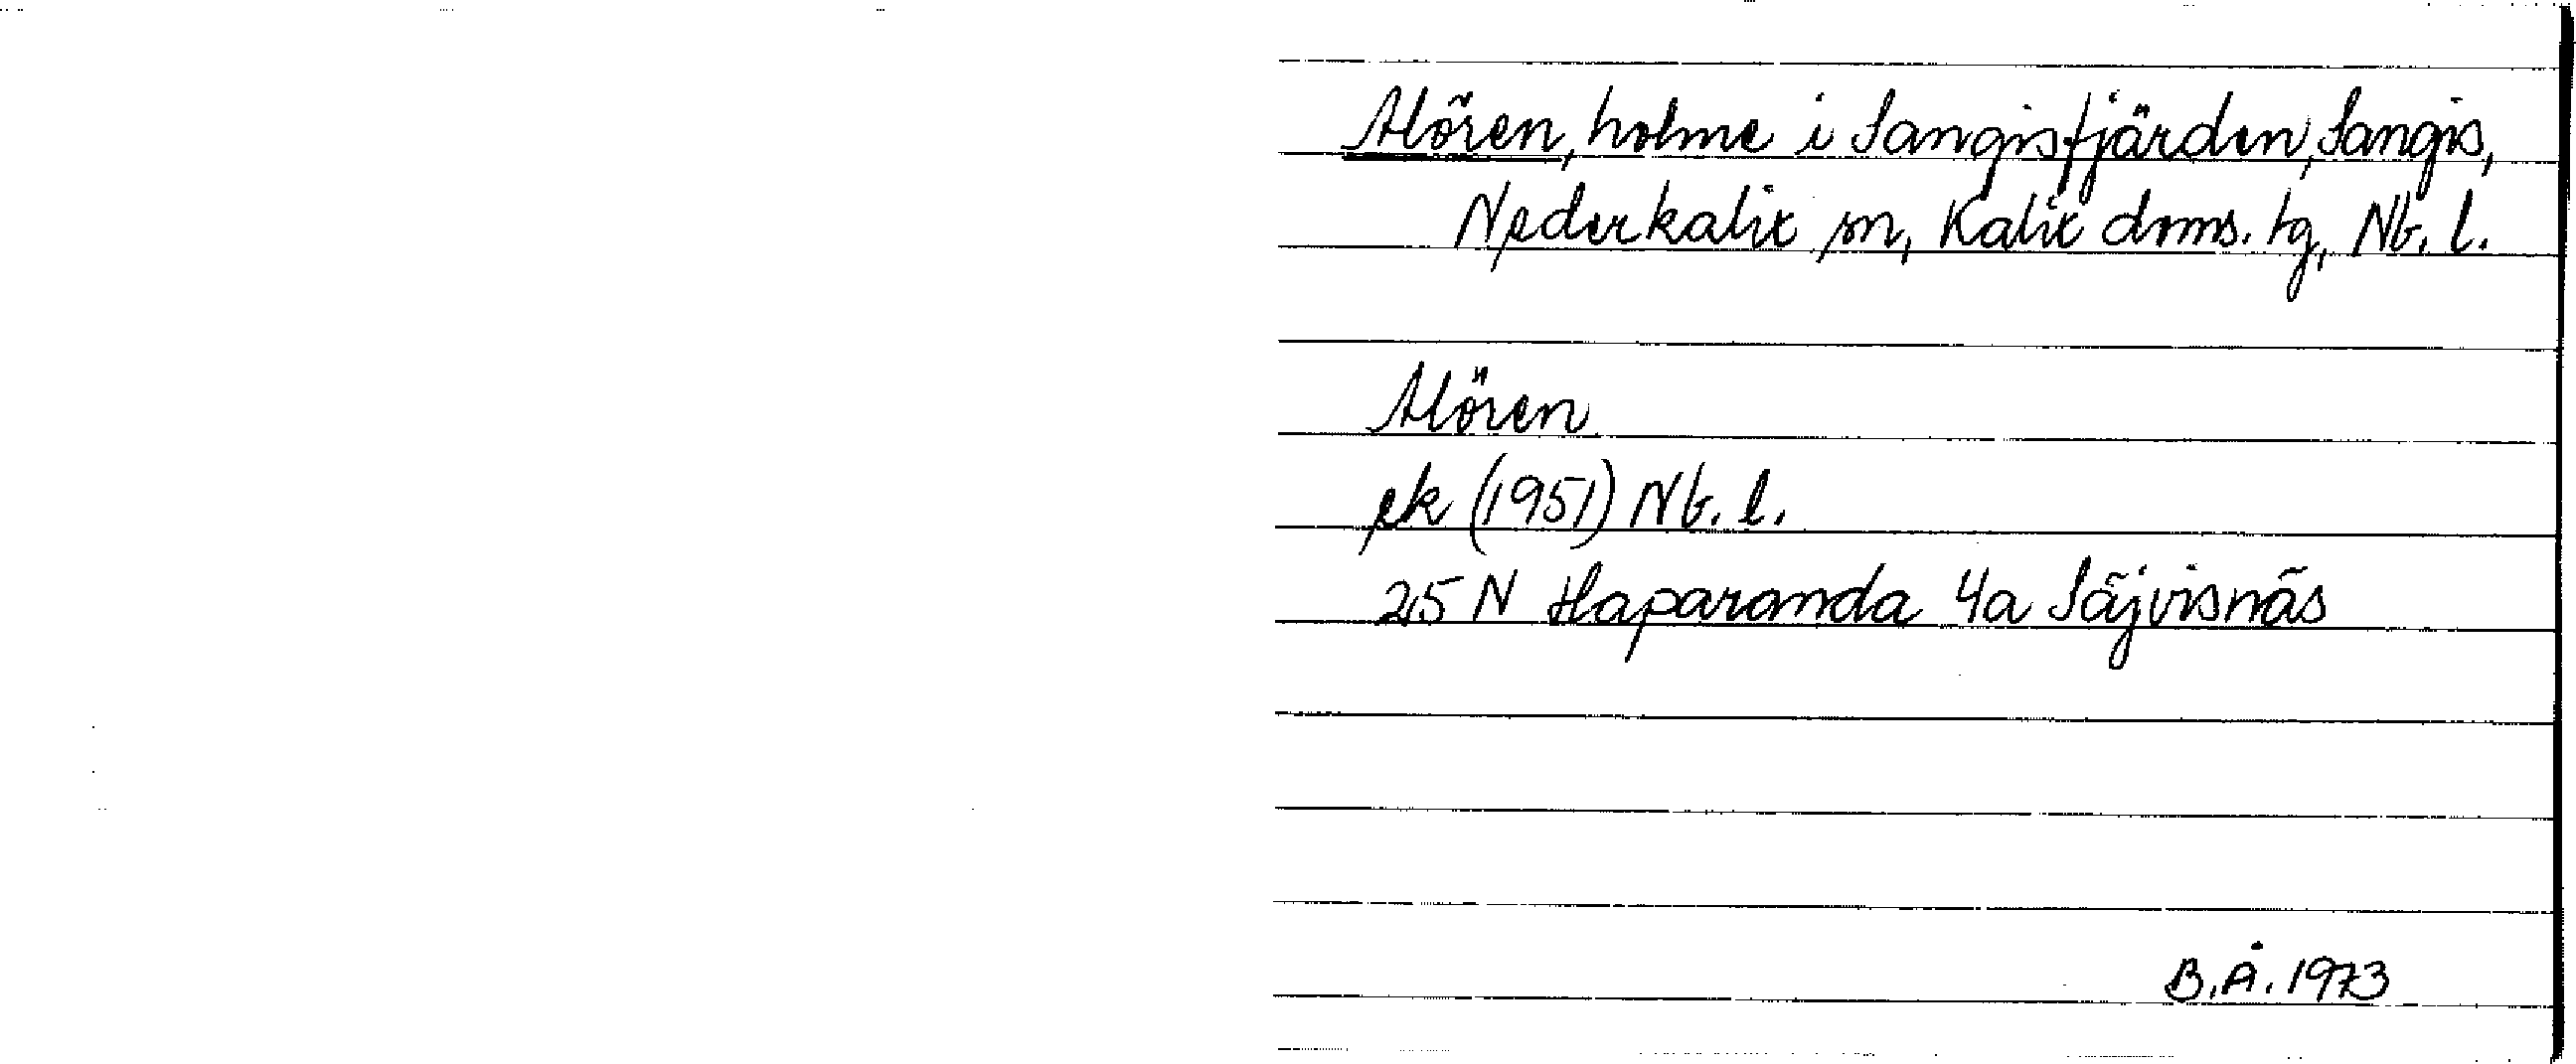 Alören, holme i Sangisfjärden, Sangis,
Nederkalix sn, Kalix doms. tg, Nb. l.
Alören
ek (1951) Nb. l.
25 N Haparanda 4a Säjvisnäs
B.Å. 1973